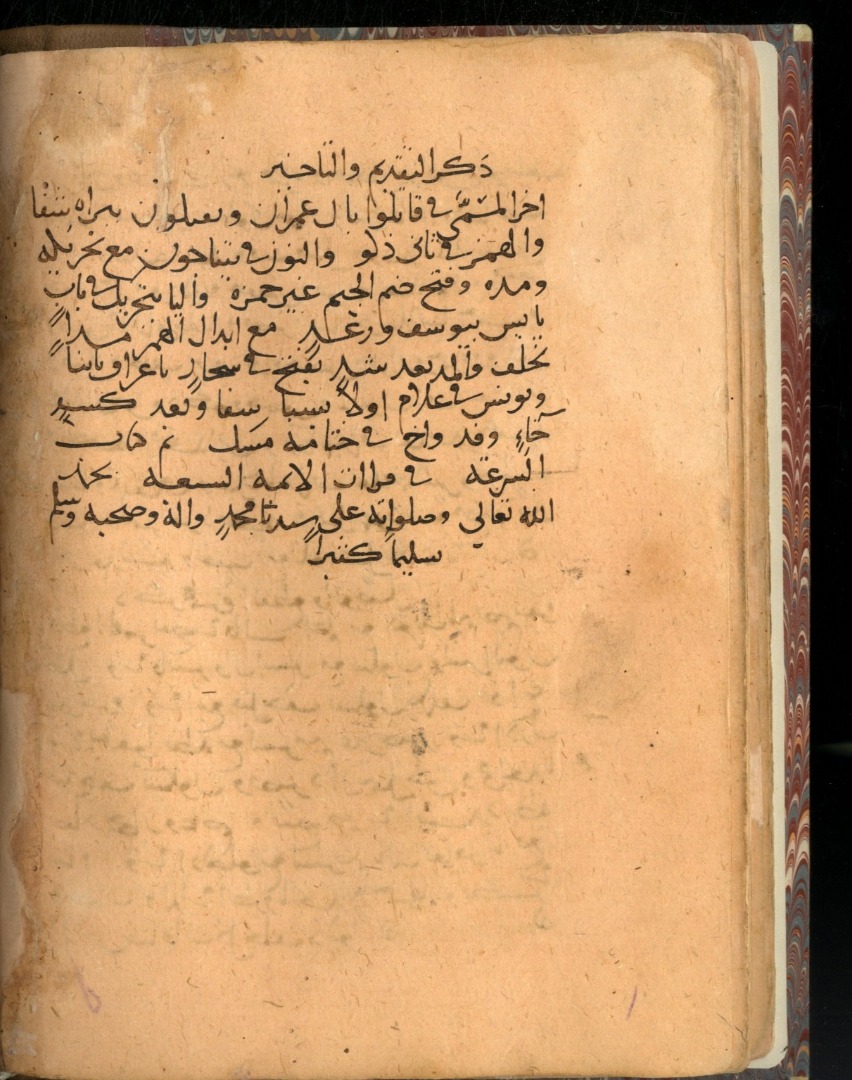 ذكر التقديم والتاخير
اخر المسمى في قاتلوا بال عمران ويقتلون ببراه شفا
والهمز في ناى ذكو والنون في يتناجون مع تحريكه
ومده وفتح ضم الجيم غير حمزه واليا بتحريك في باب
يايس بيوسف ورعد مع ابدال الهمز مدا
بخلف والمد بعد شد بفتح في سحار باعراف
ويونس في علام اولا بسبا شفا وبعد كسر
خاء وقد واخ في ختامه مسك تم كتاب
الشرعة في قراات الائمه السبعه بحمد
الله تعالى وصلواته على سيدنا محمد واله وصحبه وسلم
تسليما كثيرا